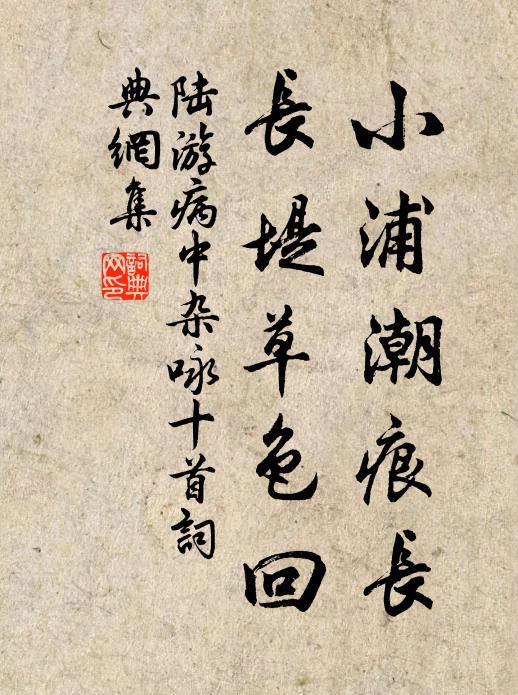 小浦潮痕長
長堤草色回
陆游病中杂咏十首詞
典網集
詞典
网印